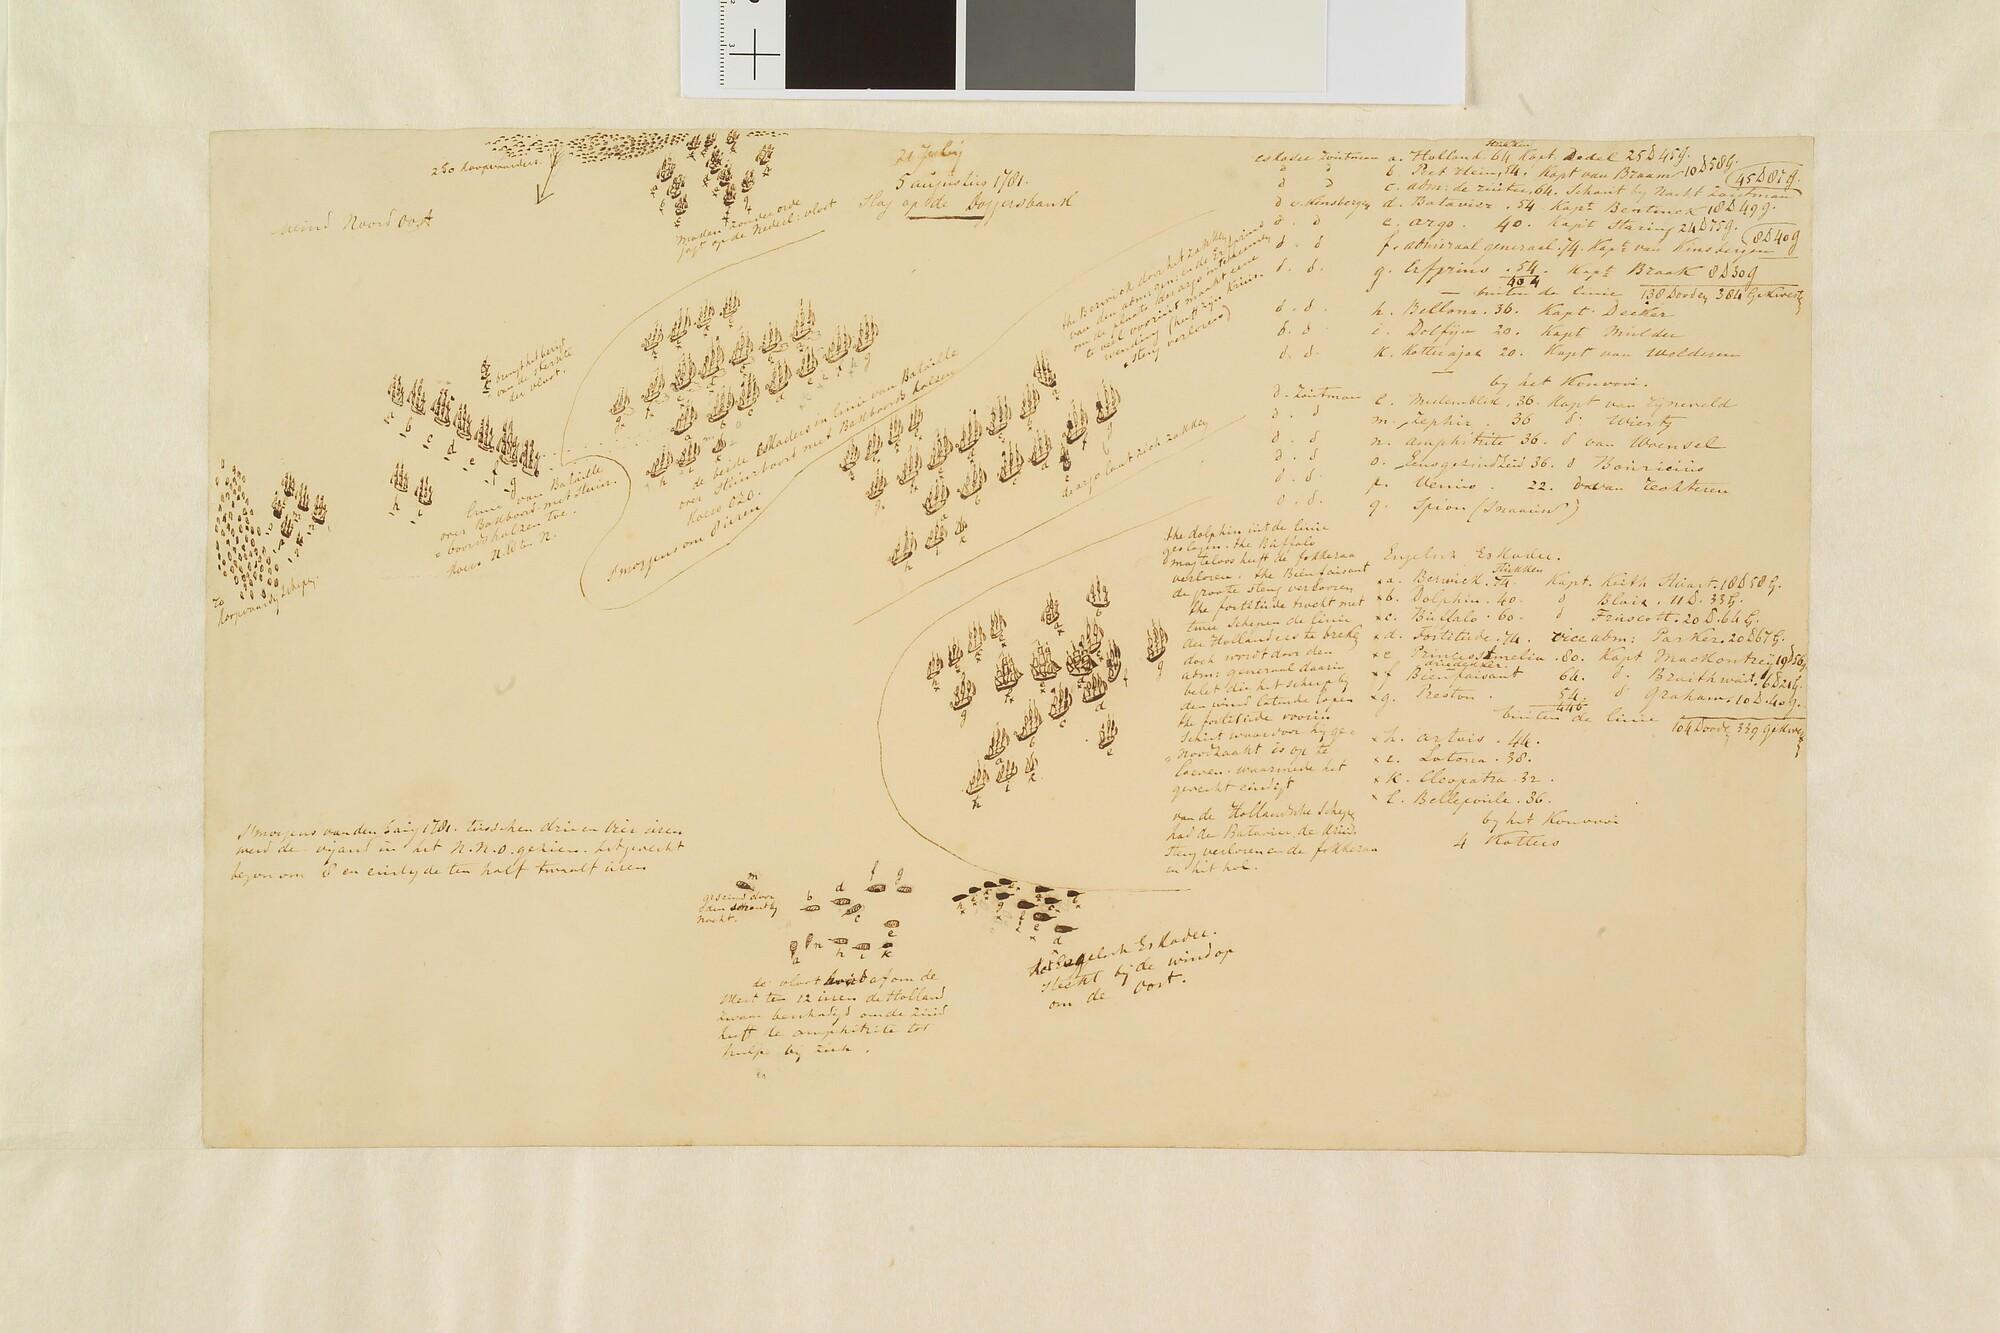 250 Koopvaarders.
wind Noord Oost
21 July
5 augustus 1781.
Slag op de Doggersbank
maaken zonder orde
jagt op de Nederl: vloot
brengt het berigt
van de sterkte
der vloot.
70
Koopvaardy schepen.
linie van Bataille
over Bakboord met stuur
boords halzen toe.
Koers N.W ten N.
de beide Eskaders in linie van Bataille
over Stuurboord met Bakboords halsen
Koers OZO.
S'morgens om 8 uuren
the Berwick door het zakken
van den adm: gen: en de Erfprins
om de plaats der argo
te veel vooruit maakt eene
wending (heeft zijn Kruis
steng verloren)
de argo laat zich zakken
the dolphin uit de linie
geslagen. the Buffalo
masteloos heeft de fokkeraa
verloren. the Bienfaisant
de groote steng verlooren
the fortitude tracht met
twee schepen de linie
der Hollanders te breken
doch wordt door den
adm: generaal daarin
belet die het scherp by
den wind latende lopen
the fortitude vooruit
schiet waardoor hy ge-
noodzaakt is op te
loeven. waarmede het
gevecht eindigt
van de Hollandsche Schepen
had de Batavier de Kruis
steng verloren en de fokkeraa
in het hol.
S'morgens van den 5 aug 1781. tusschen drie en vier uren
werd de vijand in het N.N.O. gezien. het gevecht
begon om 8 en eindigde ten half twaalf uren
geseind door
den schout by
nacht.
de vloot houdt af om de
West ten 12 uren de Holland
zwaar beschadigd om de zuid
heeft de amphitrite tot
hulp by zich.
Het Engelsch Eskader.
steekt bij de wind op
om de Oost.
eskader Zoutman a. Holland 64 stukken Kapt Dedel 25 D 45 g.
d d b. Piet Hein, 54. Kapt van Braam 10 D 58 G.
d d c. adm: de ruiter, 64. Schout by Nacht Zoutman 45 D 87 g.
d v. Kinsbergen d. Batavier. 54 Kapt. Bentinck 18 D 49 g.
d. d e. argo. 40. Kapt Staring 24 D 75 g.
d. d f. admiraal generaal. 74. Kapt. van Kinsbergen 8 D 40 g
d. d. g. Erfprins. 54. Kapt. Braak 8 D 30 g
404
buiten de linie 138 Dooden 384 Gekwetst
d. d. h. Bellona. 36. Kapt. Decker
d. d i. Dolfijn 20. Kapt Mulder
d. d. k. Kotter ajax 20. Kapt van Wolderen
by het Konvooi.
d. Zoutman l. Medemblik. 36. Kapt van Rijneveld
d. d. m. Zephir. 36 d. Wierts
d. d. n. amphitrite 36. d van Woensel
d. d. o. Eensgezindheid 36. d Bouricius
d. d. p. Venus. 22. d van Rechteren
d. d. q. Spion (Snaauw)
Engelsch Eskader.
a. Berwick. 74. stukken Kapt. Keith Stuart. 18 D 58 G.
b. Dolphin. 40. d Blair. 11 D. 33 G.
c. Buffalo. 60. d Truscott. 20 D. 64 G.
d. Fortitude. 74. vice adm: Parker. 20 D 67 G.
e. Princess Amelia. 80. Kapt Mackontrey 19 D 56 g.
driedekker.
f Bienfaisant 64. d. Braithwait. 6 D 21 G.
g. Preston. 54. d Graham. 10 D. 40 g.
446
buiten de linie 104 Doode 339 Gekwetst
h. artois. 44.
i. Latona. 38.
k. Cleopatra. 32.
l. Bellepoule. 36.
by het Konvooi
4 Kotters